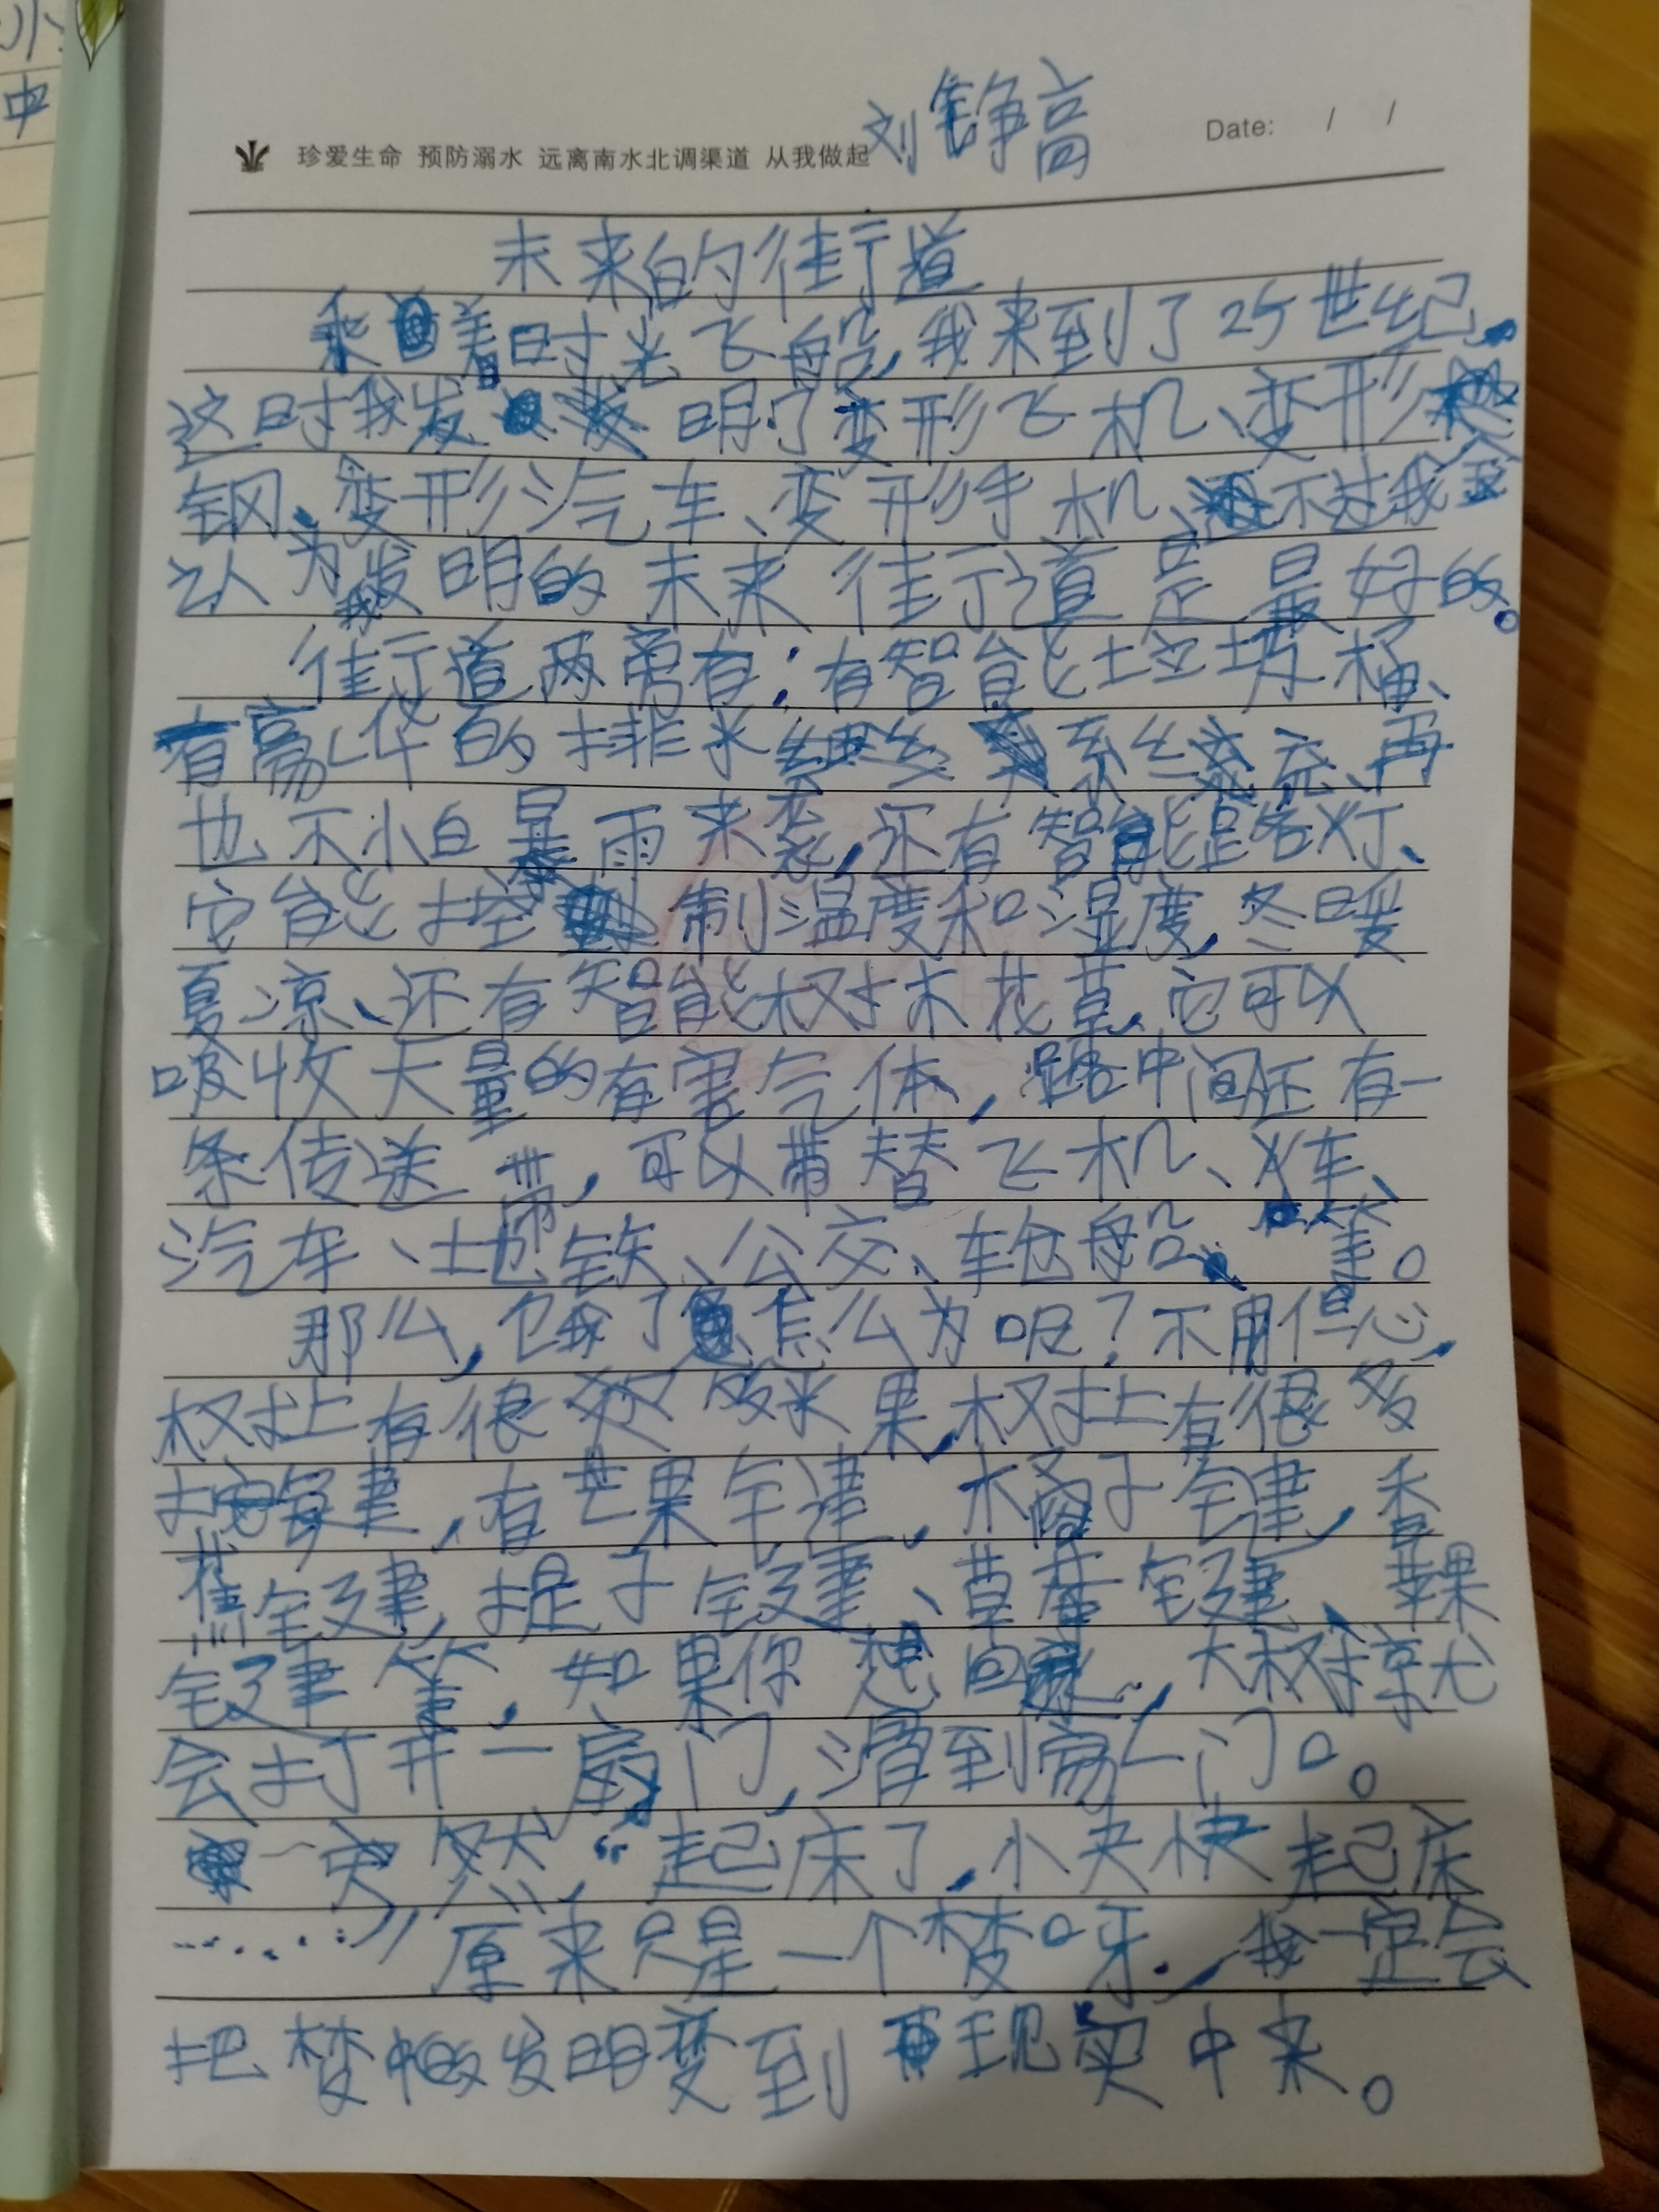 小
中
刘铮高
珍爱生命 预防溺水 远离南水北调渠道 从我做起
Date: / /
未来的街道
乘着时光飞船,我来到了25世纪,
这时我发明了变形飞机、变形
钢、变形汽车、变形手机、不过我
认为我发明的未来街道是最好的。
街道两旁有:有智能垃圾桶、
有高华的排水系统、再
也不怕暴雨来袭,还有智能路灯、
它能控制温度和湿度,冬暖
夏凉、还有智能树木花草,它可以
吸收大量的有害气体,路中间还有一
条传送带,可以带替飞机、火车、
汽车、土地铁、公交、轮船、等。
那么,饿了怎么为呢?不用但心,
树上有很多水果,树上有很多
按键,有芒果键、橘子键,香
蕉键,提子键、草莓键、苹果
键等,如果你想回家,大树就
会打开一扇门,滑到家门口。
突然,“起床了,小夹快起床
……”原来只是一个梦呀,我一定会
把梦中的发明变到现实中来。